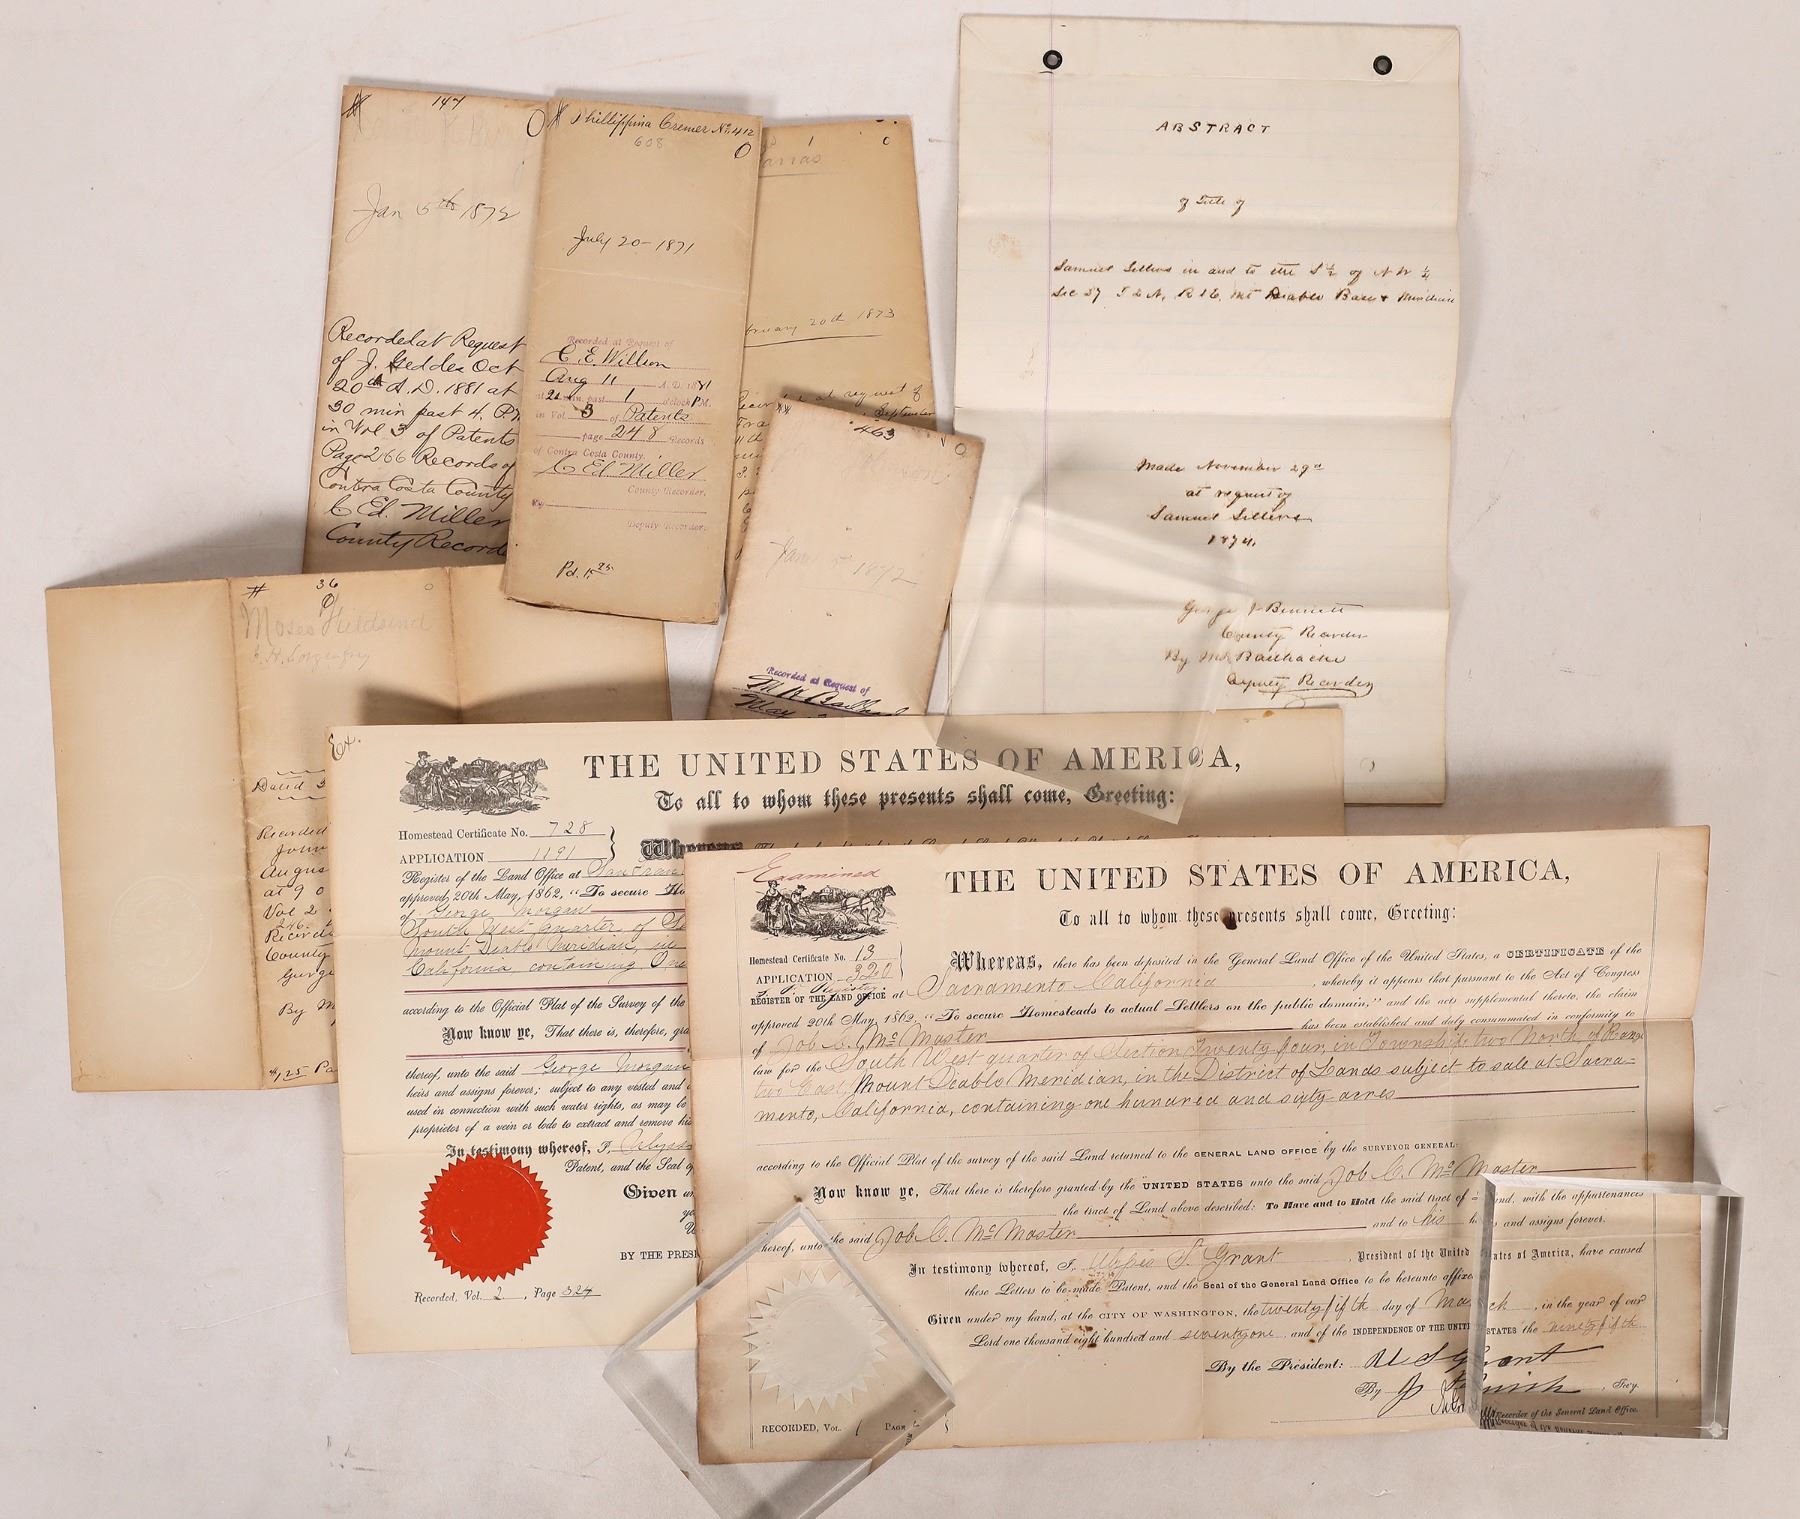 # 147 O
Jan 5th 1872
Recorded at Request
of J. Geddes Oct
20th A.D. 1881 at
30 min past 4. P.M.
in Vol 3 of Patents
Page 266 Records of
Contra Costa County
C Ed. Miller
County Recorde
# Phillippina Cremer No. 412
608 O
July 20-1871
Recorded at Request of
C. E. Willson
Aug 11 A.D. 1881
at min. past 1 o'clock P.M.
in Vol. 3 of Patents
page 248 Records
of Contra Costa County.
C Ed Miller
County Recorder.
By
Deputy Recorder.
Pd. 1.25
1
bruary 20th 1873
at request of
September
463
Jan 5 1872
Recorded at Request of
May
ABSTRACT
of Title of
Samuel Sellers in and to the S 1/2 of N W 1/4
Sec 27 T 2 N, R 1 E, Mt Diablo Base & Meridian
Made November 29th
at request of
Samuel Sellers
1874.
George J. Bennett
County Recorder
By
Deputy Recorder
# 36 O
Moses
Dated 3
Recorded
John
Augus
at 9 o
Vol 2
246
Records
County
George
By M
$1.25 Pa
Ex.
THE UNITED STATES OF AMERICA,
To all to whom these presents shall come, Greeting:
Homestead Certificate No. 728
APPLICATION 1191
Whereas
Register of the Land Office at San Fran
approved 20th May, 1862, "To secure Ho
of George Morgan
South West quarter of Se
Mount Diablo Meridian, in
California containing One
according to the Official Plat of the Survey of the
Now know ye, That there is, therefore, gra
thereof, unto the said George Morgan
heirs and assigns forever; subject to any vested and
used in connection with such water rights, as may be
proprietor of a vein or lode to extract and remove his
In testimony whereof, I, Ulysses
Patent, and the Seal of
Given un
BY THE PRESI
Recorded, Vol. 2, Page 324
Examined
THE UNITED STATES OF AMERICA,
To all to whom these presents shall come, Greeting:
Homestead Certificate No. 13
APPLICATION 320
Whereas, there has been deposited in the General Land Office of the United States, a CERTIFICATE of the
REGISTER OF THE LAND OFFICE at Sacramento California, whereby it appears that pursuant to the Act of Congress
approved 20th May, 1862, "To secure Homesteads to actual Settlers on the public domain," and the acts supplemental thereto, the claim
of Job C. McMaster has been established and duly consummated in conformity to
law for the South West quarter of Section Twenty four, in Township two North of Range
two East, Mount Diablo Meridian, in the District of Lands subject to sale at Sacra-
mento, California, containing one hundred and sixty acres
according to the Official Plat of the survey of the said Land returned to the GENERAL LAND OFFICE by the SURVEYOR GENERAL:
Now know ye, That there is therefore granted by the UNITED STATES unto the said Job C. McMaster
the tract of Land above described: To Have and to Hold the said tract of Land, with the appurtenances
thereof, unto the said Job C. McMaster and to his heirs and assigns forever.
In testimony whereof, I, Ulysses S. Grant, President of the United States of America, have caused
these Letters to be made Patent, and the Seal of the General Land Office to be hereunto affixed
Given under my hand, at the CITY OF WASHINGTON, the twenty fifth day of March, in the year of our
Lord one thousand eight hundred and seventy one, and of the INDEPENDENCE OF THE UNITED STATES the ninety fifth
By the President: U S Grant
By , Sec'y.
Recorder of the General Land Office.
RECORDED, Vol. 1 PAGE